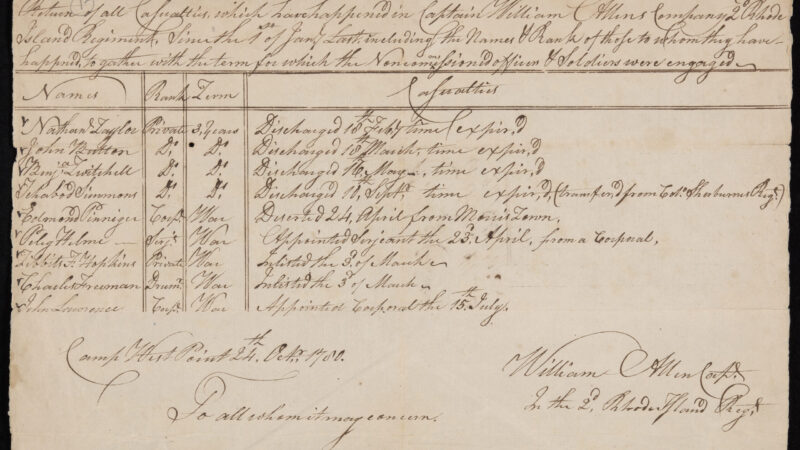 Return of all Casualties, which have happened in Captain William Allens Company 2d Rhode
Island Regiment, Since the 1st of Jany Last, including the Names & Rank of those to whom they have
happned, to gather with the term for which the Noncommissioned officers & Soldiers were engaged
Names Rank Term Casualties
Nathan Taylor Private 3 Years Discharged 18th Feby time expir,d
John Britton Do Do Discharged 18 March, time expir,d
Benja Twitchell Do Do Discharged 16th May, time expir,d
Ichabod Simmons Do Do Discharged 11th Sept, time expir,d, (transfer,d from Colo Sherburnes Regt)
Colmond Corpl War Deserted 24, April from Morris Town,
Pelig Helme Serjt War Appointed Serjeant the 23d April, from a Corporal,
Hopkins Private War Inlisted the 3d of March
Charles Freeman Drumr War Inlisted the 3d of March
John Lawrence Corpl War Appointed Corporal the 15th July,
Camp West Point 24th Octr 1780.
William Allen Capt
In the 2d Rhode Island Regt
To all whom it may concern.